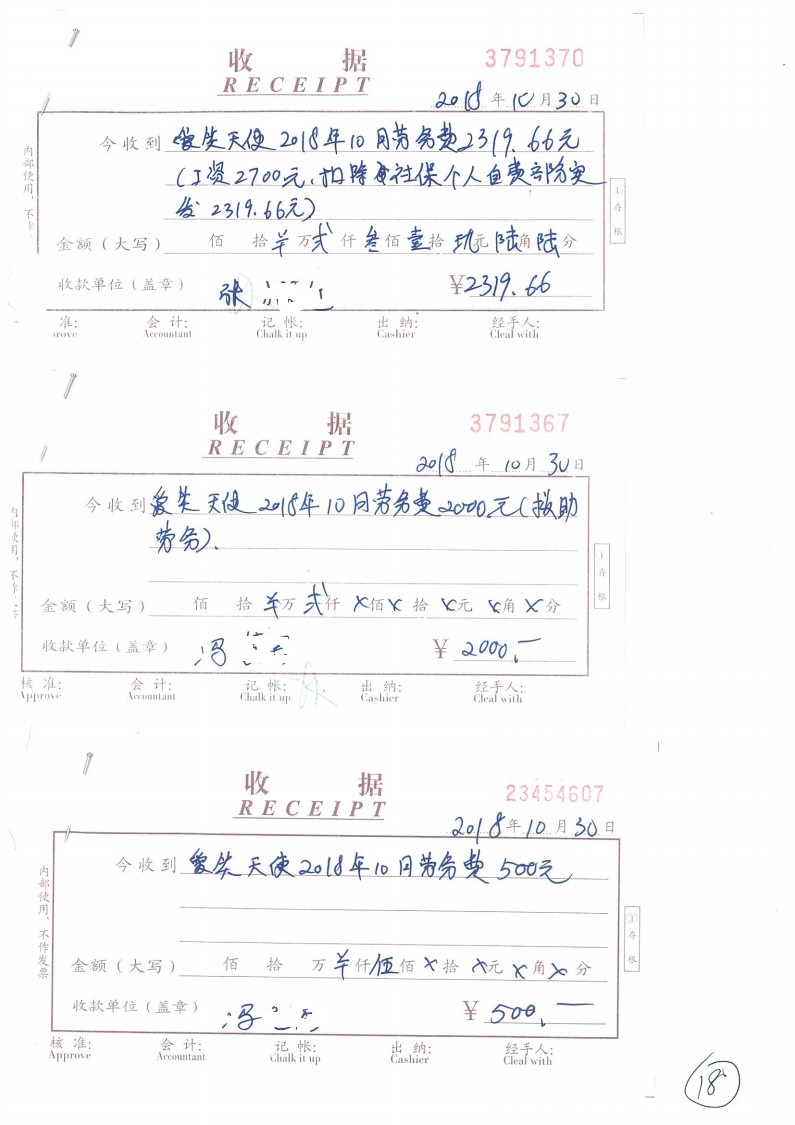 收 据
RECEIPT
3791370
2018年10月30日
今收到 爱笑天使2018年10月劳务费2319.66元
(工资2700元,扣除社保个人自费部份实
发2319.66元)
金额(大写) 佰 拾 万 贰仟 叁佰 壹拾 玖元 陆角 陆分
收款单位(盖章) 张 ¥2319.66
准: 会 计: 记 帐: 出 纳: 经手人:
prove Accountant Chalk it up Cashier Cleal with
内部使用,不作
①存根
收 据
RECEIPT
3791367
2018年10月30日
今收到 爱笑天使2018年10月劳务费2000元(救助
劳务).
金额(大写) 佰 拾 万 贰仟 ×佰× 拾 ×元 ×角 ×分
收款单位(盖章) 冯 ¥2000.—
核 准: 会 计: 记 帐: 出 纳: 经手人:
Approve Accountant Chalk it up Cashier Cleal with
内部使用,不作
①存根
收 据
RECEIPT
23454607
2018年10月30日
今收到 爱笑天使2018年10月劳务费500元
金额(大写) 佰 拾 万 仟伍佰 ×拾 ×元 ×角× 分
收款单位(盖章) 冯 ¥500.—
核 准: 会 计: 记 帐: 出 纳: 经手人:
Approve Accountant Chalk it up Cashier Cleal with
内部使用,不作发票
①存根
18